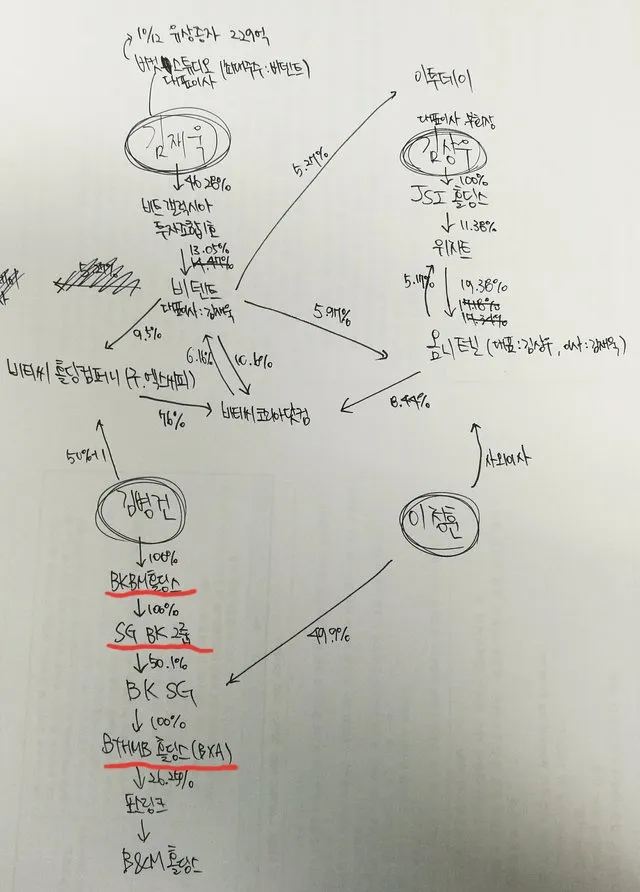 10/12 유상증자 229억
버킷스튜디오 (최대주주:비덴트)
대표이사
김재욱
46.28%
비트갤럭시아
투자조합1호
13.05%
14.47%
비덴트
대표이사:김재욱
5.27%
이투데이
대표이사 부회장
김상우
100%
JSI 홀딩스
11.38%
위지트
5.17%
19.38%
17.18%
17.34%
5.97%
옴니텔 (대표:김상우, 이사:김재욱)
9.5%
6.16%
10.6%
비티씨 홀딩컴퍼니 (구.엑스씨피)
76%
비티씨코리아닷컴
8.44%
50%+1
사외이사
김병건
이정훈
100%
BKBM홀딩스
100%
SG BK그룹
50.1%
49.9%
BK SG
100%
BTHMB 홀딩스(BXA)
26.24%
판링크
B&M 홀딩스